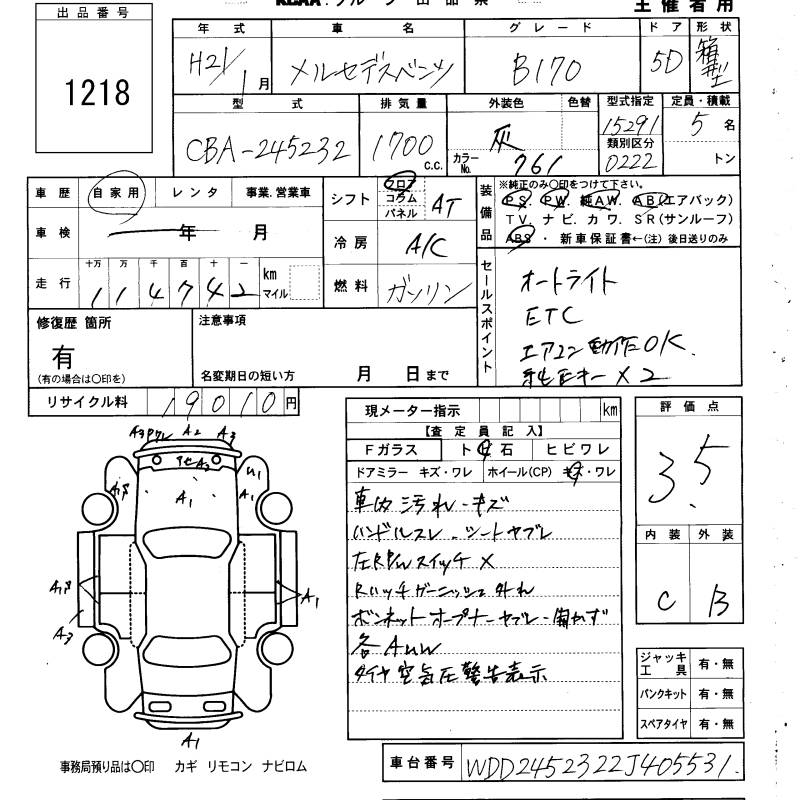 出品番号
主催者用
1218
年式 車名 グレード ドア 形状
H21/1月 メルセデスベンツ B170 5D 箱型
型式 排気量 外装色 色替 型式指定 定員・積載
CBA-245232 1700c.c. 灰 15291 5名
類別区分
カラーNo. 761 0222 トン
車歴 自家用 レンタ 事業.営業車
シフト フロア コラム パネル AT
装備品
※純正のみ〇印をつけて下さい。
PS. PW. 純AW. AB(エアバック)
TV. ナビ. カワ. SR(サンルーフ)
ABS ・ 新車保証書←(注)後日送りのみ
車検 年 月
冷房 A/C
走行 十万 万 千 百 十 一
114742 km マイル
燃料 ガソリン
セールスポイント
オートライト
ETC
エアコン動作OK.
純正キーX2
修復歴 箇所
有
(有の場合は〇印を)
注意事項
名変期日の短い方 月 日まで
リサイクル料 19010円
現メーター指示 km
【査定員記入】
Fガラス ト 石 ヒビワレ
ドアミラー キズ・ワレ ホイール(CP) キズ・ワレ
車内汚れ・キズ
ハンドルスレ・シートヤブレ
左RP/WスイッチX
Rハッチガーニッシュ外れ
ボンネットオープナーヤブレ・開かず
各AUW
タイヤ空気圧警告表示
評価点
3.5
内装 外装
C B
A2 A3
A1
A1
A1
A3
A1
ジャッキ工具 有・無
パンクキット 有・無
スペアタイヤ 有・無
事務局預り品は〇印 カギ リモコン ナビロム
車台番号 WDD2452322J405531.